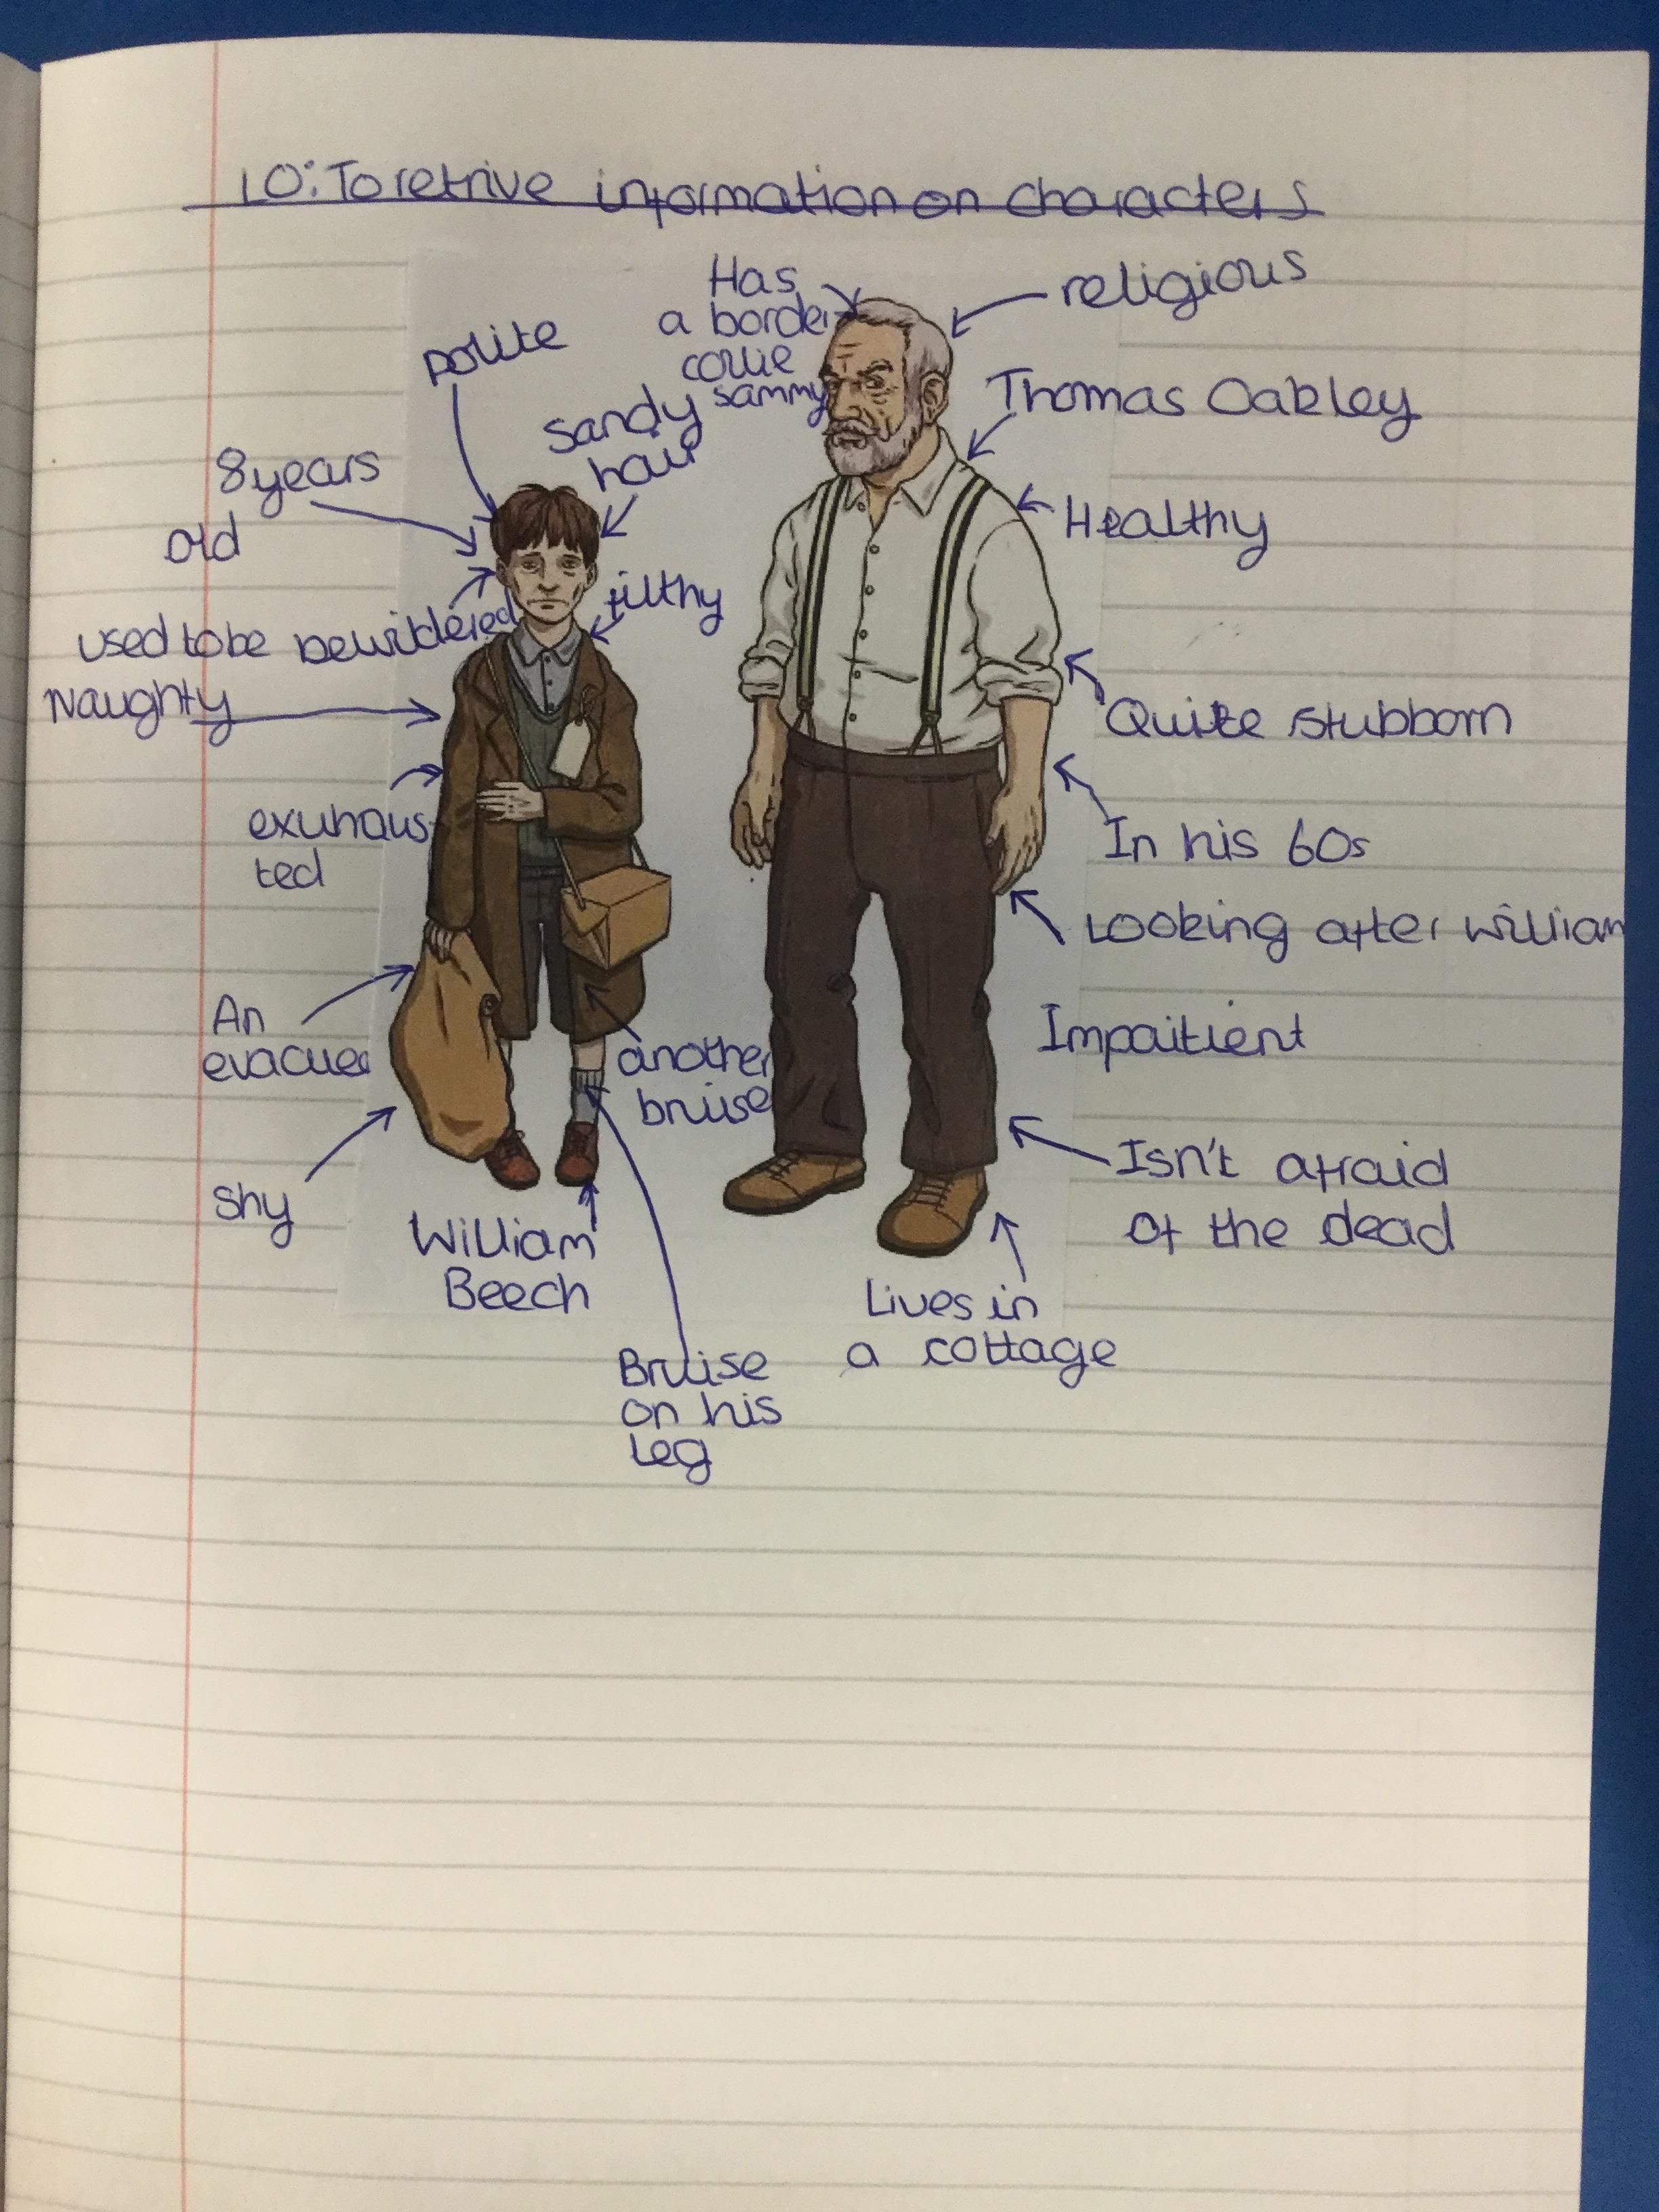 LO: To retrive information on characters
polite
8 years
old
sandy
hair
filthy
bewildered
used to be
Naughty
exuhaus
ted
An
evacuee
shy
William
Beech
another
bruise
Bruise
on his
leg
Has
a border
collie
sammy
religious
Thomas Oakley
Healthy
Quite stubborn
In his 60s
Looking after william
Impaitient
Isn't afraid
of the dead
Lives in
a cottage